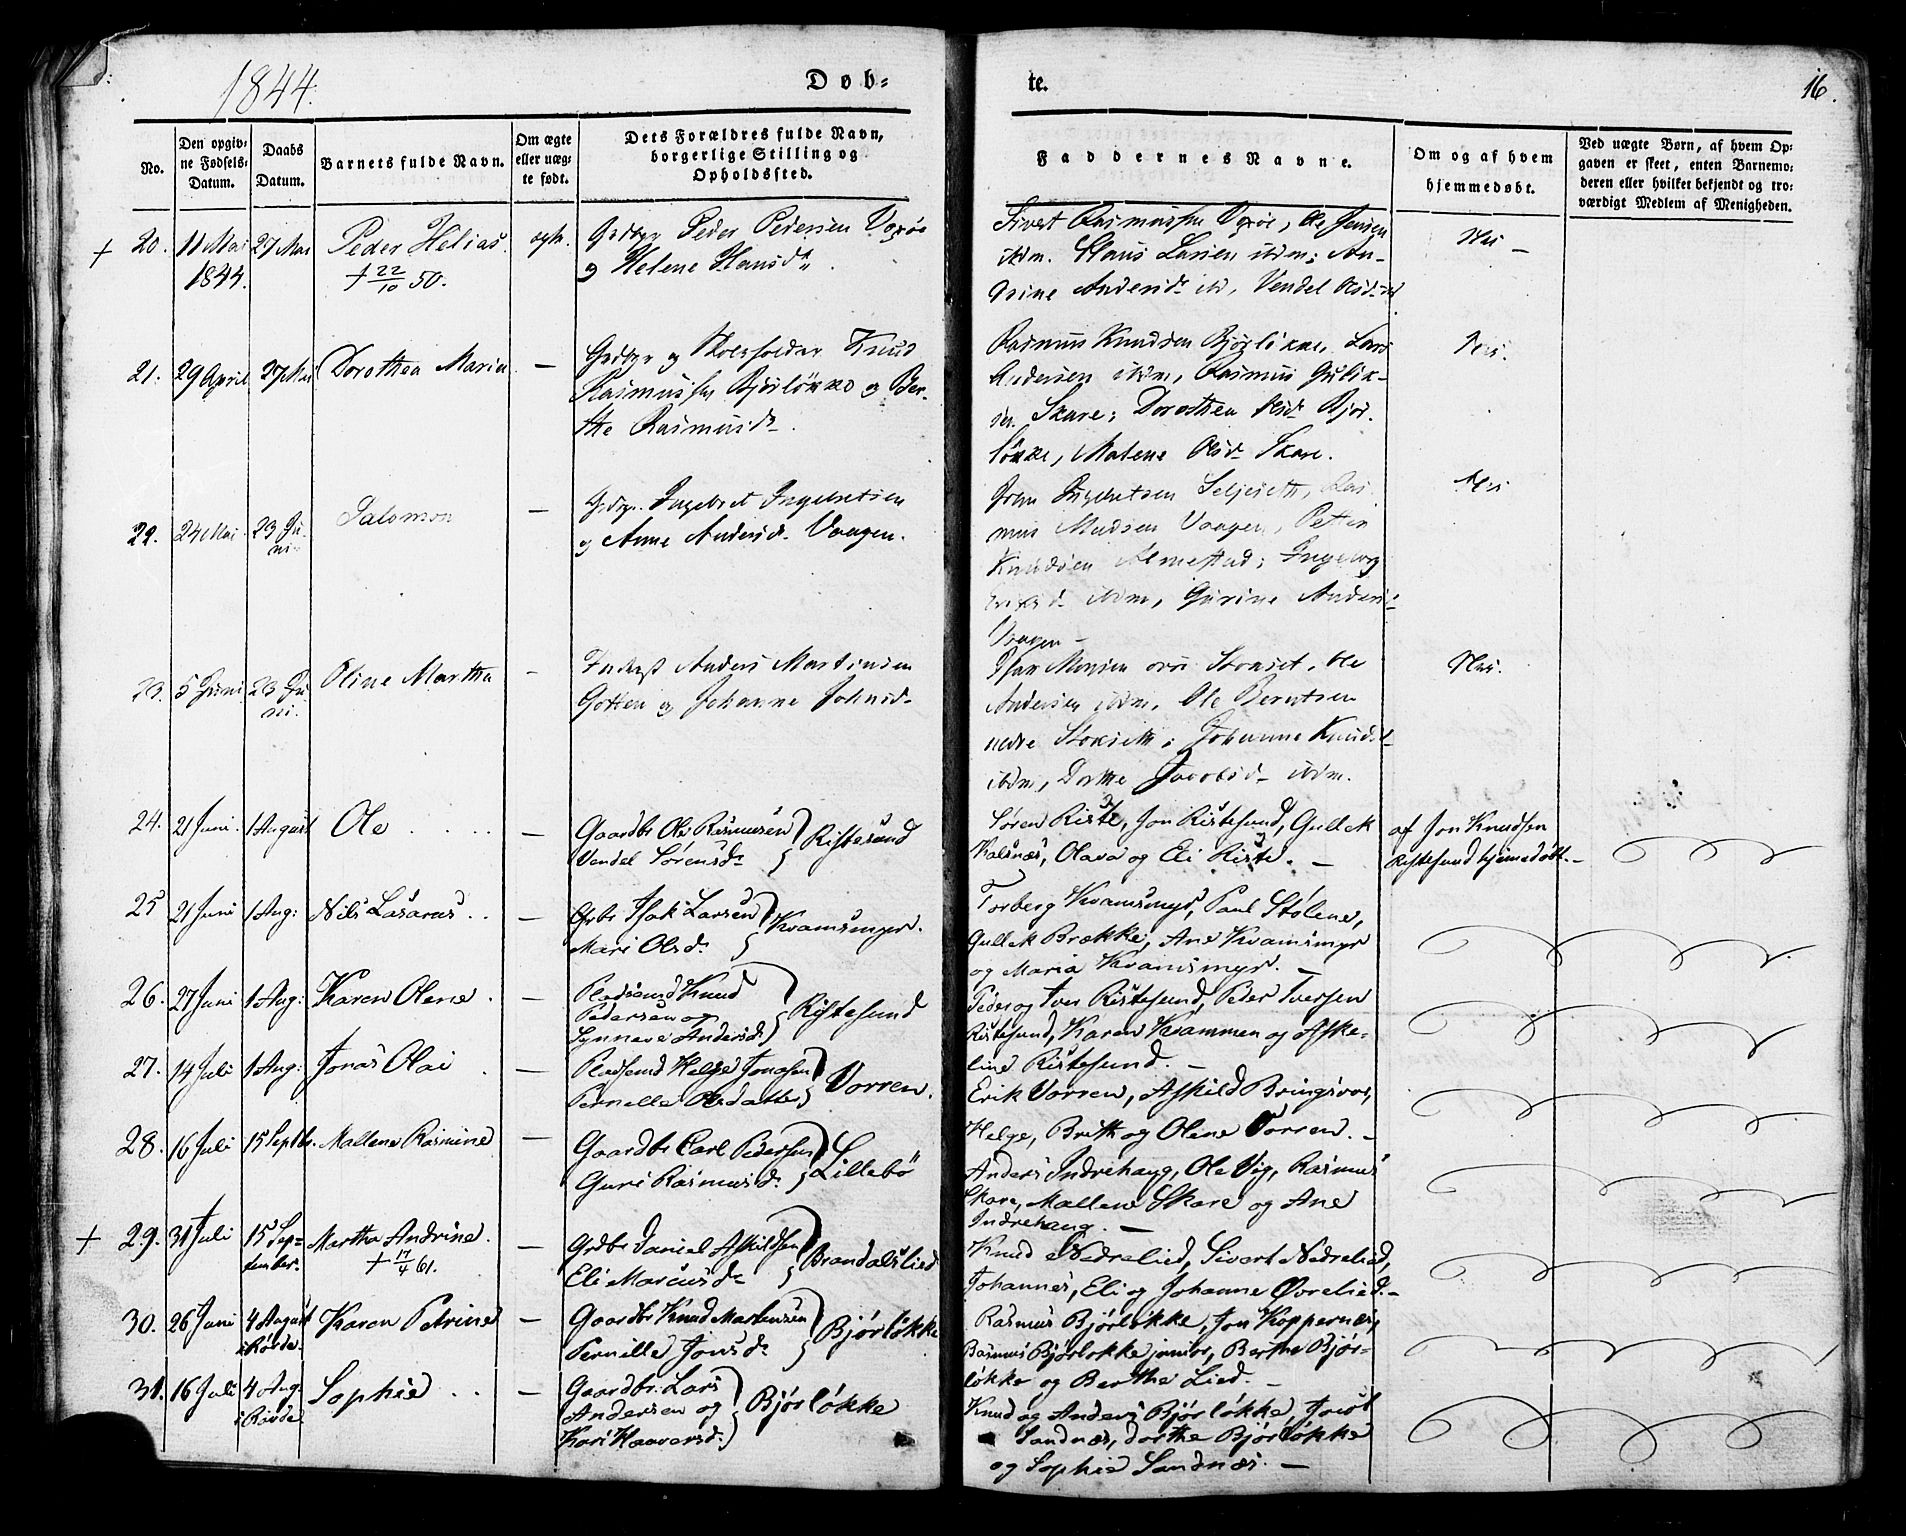 1844.
Døb-
te.
16.
No.
Den opgiv-
ne Fødsels-
Datum.
Daabs
Datum.
Barnets fulde Navn.
Om ægte
eller uæg-
te født.
Dets Forældres fulde Navn,
borgerlige Stilling og
Opholdssted.
Faddernes Navne.
Om og af hvem
hjemmedøbt.
Ved uægte Børn, af hvem Op-
gaven er skeet, enten Barnemo-
deren eller hvilket bekjendt og tro-
værdigt Medlem af Menigheden.
+ 20. 11 Mai 27 Mai Peder Helias. ægte. Peder Pedersen
1844. + 22/10 50.
og Helene Hansd.
Sivert Rasmussen, Ole Jensen
ibdm. Claus Larsen ibdm; An-
Anders d. Vendel
21. 29 April 27 Mai Dorothea Maria — og Skoleholder Knud
Rasmussen Bjørløkke og Ber-
the Rasmusd.
Rasmus Knudsen Bjørløkke, Lars
Andersen ibdm, Rasmus Gulik-
sen Skare; Dorothea Olsd. Bjør-
løkke, Malene Olsd. Skare.
22. 24 Mai 23 Ju-
ni Salomon — Ingebret Ingebretsen
og Anne Andersd. Vaagen.
John Ingebretsen, Ras-
mus Vaagen, Petter
Knudsen Almestad; Ingeborg
ibdm, Gurine Anders
Vaagen —
23. 5 Juni 23 Ju-
ni. Oline Martha — Anders Martinsen
Gotten og Johanne Johnsd.
Monsen Stokset, Ole
Andersen ibdm, Ole Berntsen
nedre Stokseth; Johanne Knudsd.
ibdm, Dorthe Jacobsd. ibdm.
24. 21 Juni. 1 August Ole — Gaardbr. Ole Rasmusen
Vendel Sørensd. Ristesund
Søren Riste, Jon Ristesund, Gullek
Kalsnæs, Olava og Eli Riste. —
af Jon Knudsen
Ristesund hjemmedøbt. —
25 21 Juni 1 Aug: Nils Lasarus. — Grbr Isak Larsen
Mari Olsd. Kvamsmyr.
Torberg Kvamsmyr, Paul Stølene,
Gullek Brække, Ane Kvamsmyr
og Maria Kvamsmyr. —
26. 27 Juni 1 Aug: Karen Olene. — Pladsmd Knud
Pedersen og
Synneve Andersd. Ristesund
Peder og Iver Ristesund, Peder Iversen
Ristesund, Karen Kvammen og Aske-
line Ristesund. —
27. 14 Juli 1 Aug: Jonas Olai. — Pladsmd Helge Jonasen
Pernille Olsdatter Vorren.
Erik Vorren, Askild Bringsvor,
Helge, Brith og Olene Vorren. —
28. 16 Juli 15 Septbr. Mallene Rasmine — Gaardbr Carl Pedersen
Guri Rasmusd. Lillebö
Anders Indrehaug, Ole Vig, Rasmus
Skare, Mallene Skare og Ane
Indrehaug. —
+ 29. 31 Juli 15 Sep-
tember. Martha Andrine.
+ 17/4 61. — Grdbr Daniel Askildsen
Eli Marcusd. Brandalslied
Knud Nedrelied, Sivert Nedrelied,
Johannes, Eli og Johanne Øvrelied. —
30. 26 Juni 4 August
i Røvde. Karen Petrine — Gaardbr Knud Martensen
Pernille Jonsd. Bjørløkke
Rasmus Bjørløkke, Jon Koppernæs,
Rasmus Bjørløkke junior, Berthe Bjør-
løkke og Berthe Lied. —
31. 16 Juli 4 Aug.
i Røvde Sophie — Gaardbr: Lars
Andersen og
Kari Haaversd. Bjørløkke
Knud og Anders Bjørløkke, Jacob
Sandnæs, Dorthe Bjørløkke
og Sophie Sandnæs. —